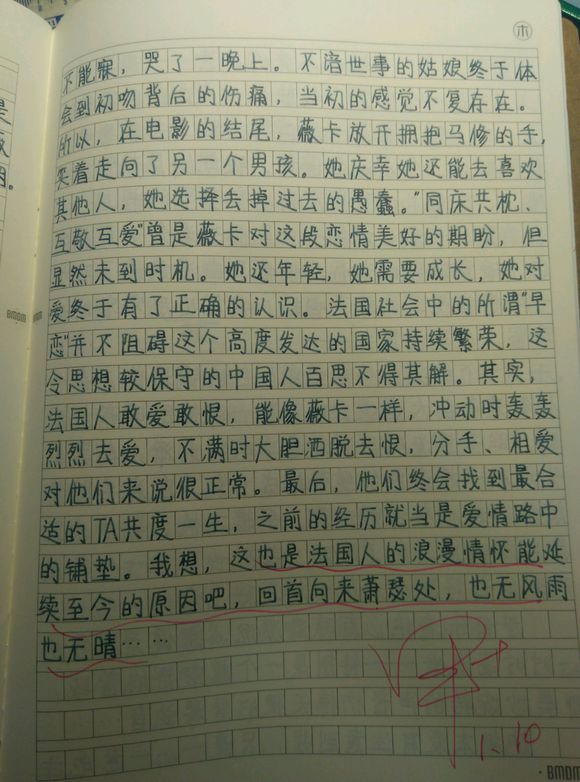 木
不能寐，哭了一晚上。不谙世事的姑娘终于体
会到初吻背后的伤痛，当初的感觉不复存在。
所以，在电影的结尾，薇卡放开拥抱马修的手，
笑着走向了另一个男孩。她庆幸她还能去喜欢
其他人，她选择丢掉过去的愚蠢。“同床共枕、
互敬互爱”曾是薇卡对这段恋情美好的期盼，但
显然未到时机。她还年轻，她需要成长，她对
爱终于有了正确的认识。法国社会中的所谓“早
恋”并不阻碍这个高度发达的国家持续繁荣，这
令思想较保守的中国人百思不得其解。其实，
法国人敢爱敢恨，能像薇卡一样，冲动时轰轰
烈烈去爱，不满时大胆洒脱去恨，分手、相爱
对他们来说很正常。最后，他们终会找到最合
适的TA共度一生，之前的经历就当是爱情路中
的铺垫。我想，这也是法国人的浪漫情怀能延
续至今的原因吧，回首向来萧瑟处，也无风雨
也无晴……
1.10
BMDM